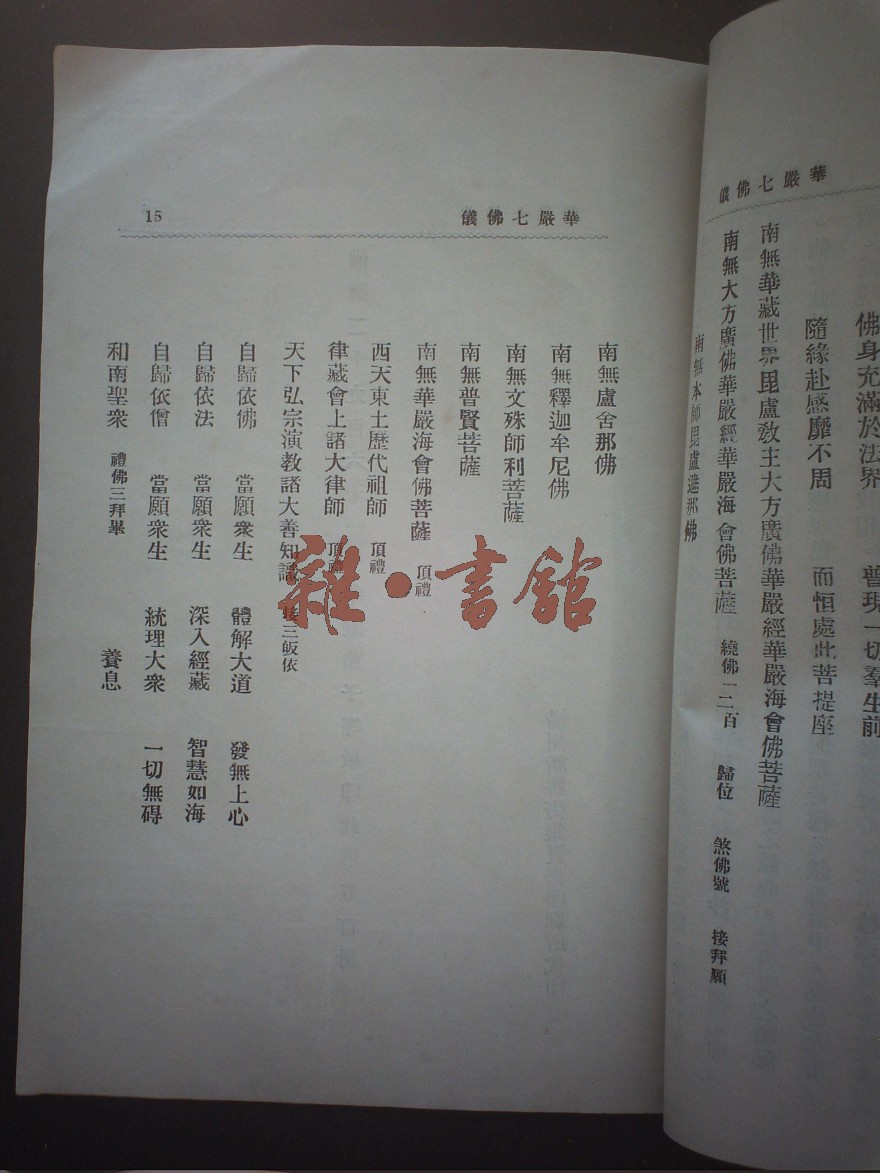 華嚴七佛儀
佛身充滿於法界 普現一切羣生前
隨緣赴感靡不周 而恒處此菩提座
南無華藏世界毘盧教主大方廣佛華嚴經華嚴海會佛菩薩
南無大方廣佛華嚴經華嚴海會佛菩薩 繞佛一二百 歸位 煞佛號 接拜願
南無本師毘盧遮那佛
華嚴七佛儀
15
南無盧舍那佛
南無釋迦牟尼佛
南無文殊師利菩薩
南無普賢菩薩
南無華嚴海會佛菩薩 頂禮
西天東土歷代祖師 頂禮
律藏會上諸大律師 頂禮
天下弘宗演教諸大善知識 接三皈依
自歸依佛 當願衆生 體解大道 發無上心
自歸依法 當願衆生 深入經藏 智慧如海
自歸依僧 當願衆生 統理大衆 一切無碍
和南聖衆 禮佛三拜畢 養息
雜·書館